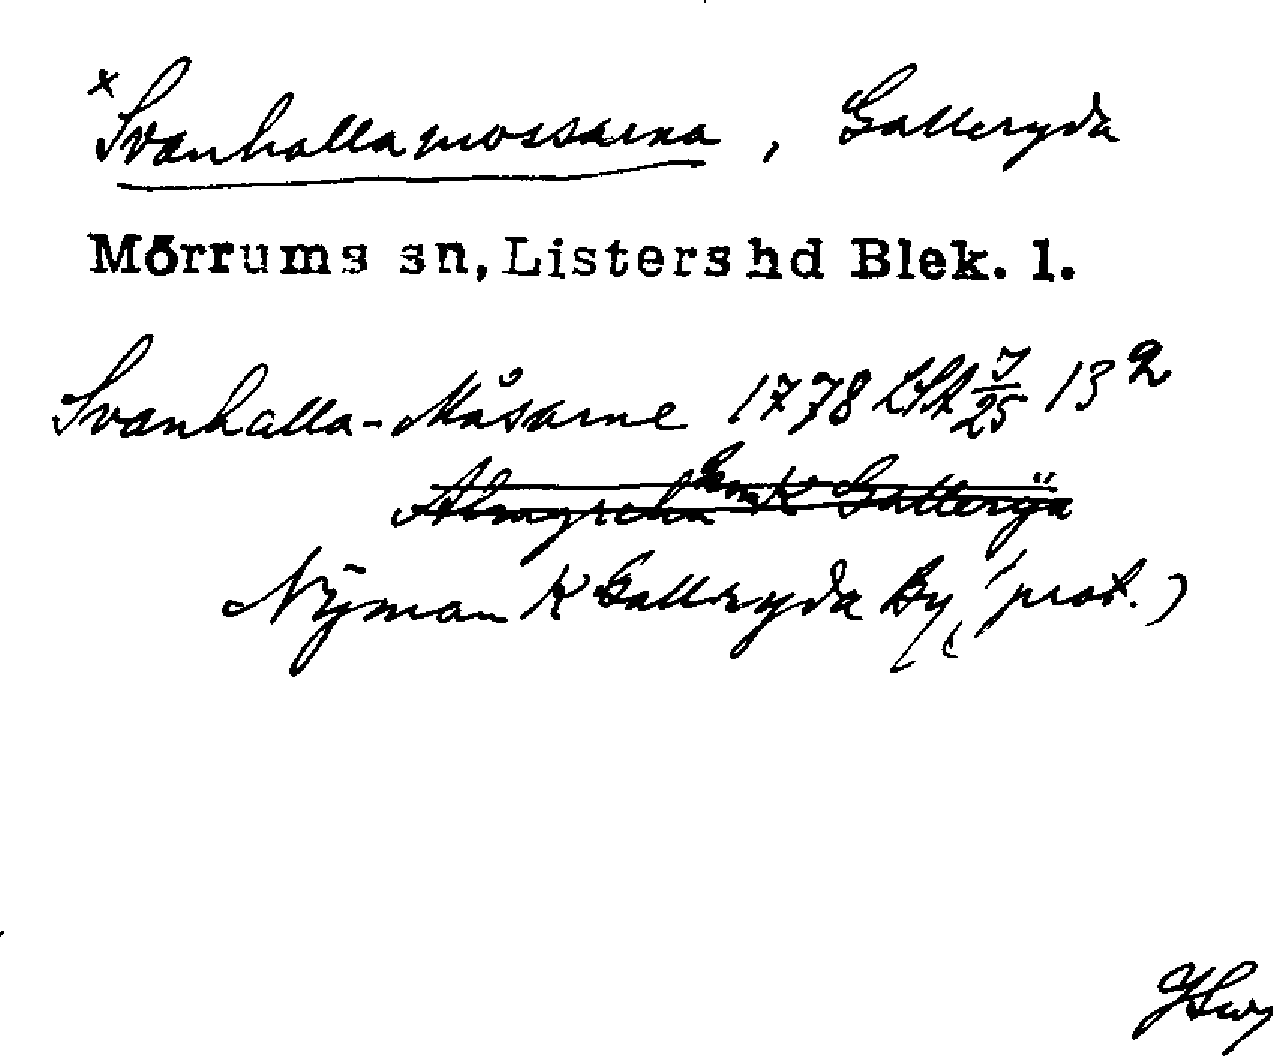 ×Svanhallamossarna, Galleryda
Mörrums sn, Listers hd Blek. l.
Svanhalla-Måsarne 1778 LSA J/25 13²
K Gallerya
Nÿman K Galleryda By, (prot.)